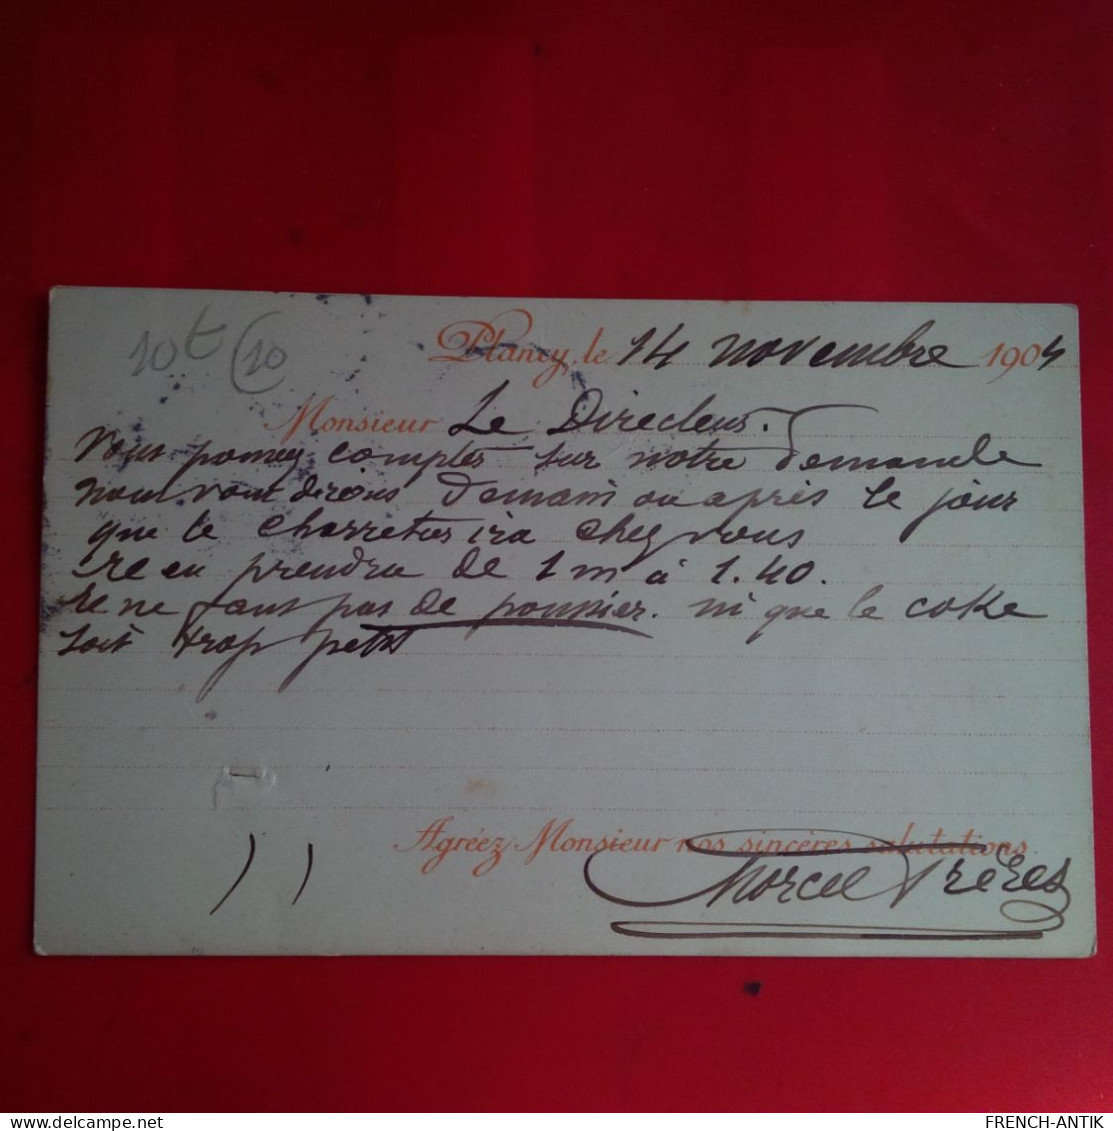 10t (10
Plancy, le 14 novembre 1904
Monsieur Le Directeur.
Vous pouvez compter sur notre demande
nous vous dirons demain ou après le jour
que le charretier ira chez vous
en prendra de 1 m à 1.40.
ne faut pas de poussier. ni que le coke
soit trop petit
Agréez Monsieur nos sincères salutations.
Marcel Frères
FRENCH-ANTIK